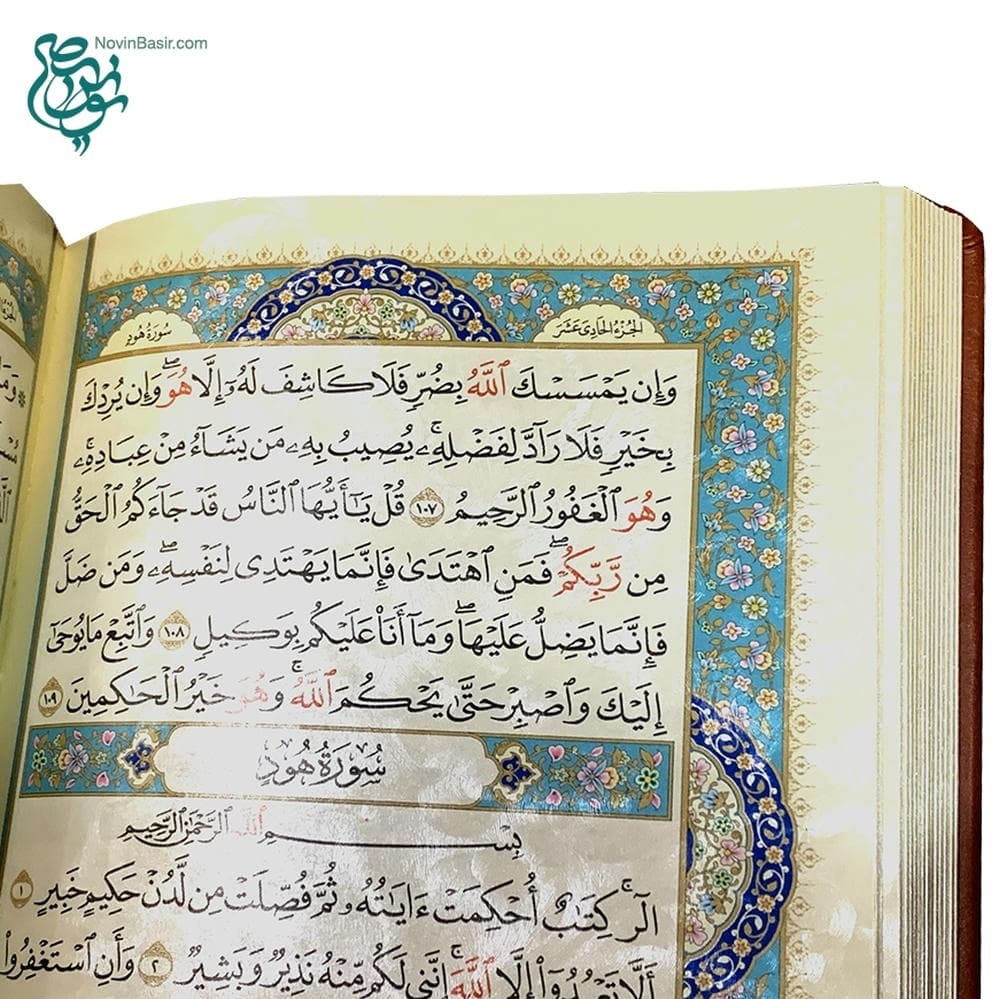 NovinBasir.com
الجُزْءُ الحَادِى عَشَرَ
سُورَةُ هُود
وَإِن يَمْسَسْكَ ٱللَّهُ بِضُرٍّ فَلَا كَاشِفَ لَهُۥٓ إِلَّا هُوَۖ وَإِن يُرِدْكَ
بِخَيْرٍ فَلَا رَآدَّ لِفَضْلِهِۦۚ يُصِيبُ بِهِۦ مَن يَشَآءُ مِنْ عِبَادِهِۦۚ
وَهُوَ ٱلْغَفُورُ ٱلرَّحِيمُ ١٠٧ قُلْ يَـٰٓأَيُّهَا ٱلنَّاسُ قَدْ جَآءَكُمُ ٱلْحَقُّ
مِن رَّبِّكُمْۖ فَمَنِ ٱهْتَدَىٰ فَإِنَّمَا يَهْتَدِى لِنَفْسِهِۦۖ وَمَن ضَلَّ
فَإِنَّمَا يَضِلُّ عَلَيْهَاۖ وَمَآ أَنَا۠ عَلَيْكُم بِوَكِيلٍ ١٠٨ وَٱتَّبِعْ مَا يُوحَىٰٓ
إِلَيْكَ وَٱصْبِرْ حَتَّىٰ يَحْكُمَ ٱللَّهُۚ وَهُوَ خَيْرُ ٱلْحَـٰكِمِينَ ١٠٩
سُورَةُ هُودٍ
بِسْمِ ٱللَّهِ ٱلرَّحْمَـٰنِ ٱلرَّحِيمِ
الٓرۚ كِتَـٰبٌ أُحْكِمَتْ ءَايَـٰتُهُۥ ثُمَّ فُصِّلَتْ مِن لَّدُنْ حَكِيمٍ خَبِيرٍ ١
أَلَّا تَعْبُدُوٓا۟ إِلَّا ٱللَّهَۚ إِنَّنِى لَكُم مِّنْهُ نَذِيرٌ وَبَشِيرٌ ٢ وَأَنِ ٱسْتَغْفِرُوا۟